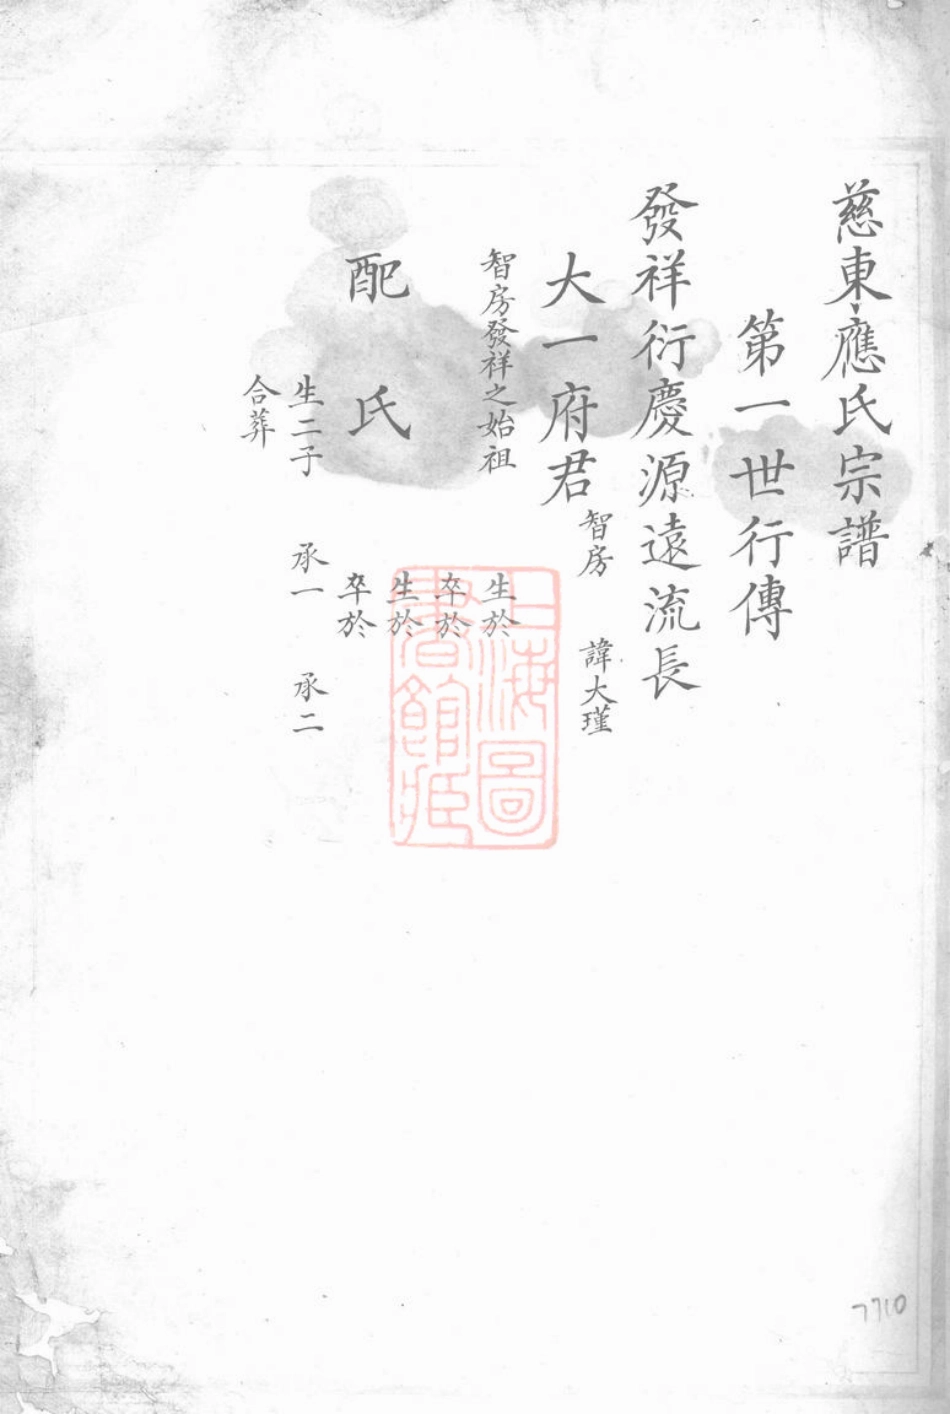 慈東應氏宗譜
第一世行傳
發祥衍慶源遠流長
大一府君 智房 諱大瑾
智房發祥之始祖 生於
卒於
配 氏 生於
卒於
生二子 承一 承二
合葬
上海圖
書館藏
7710